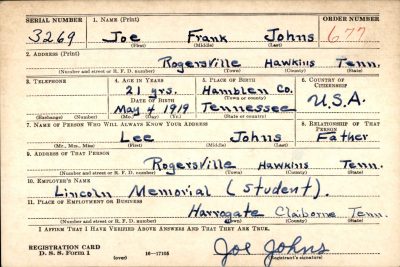 SERIAL NUMBER 1. NAME (Print) ORDER NUMBER
3269 Joe Frank Johns 677
(First) (Middle) (Last)
2. ADDRESS (Print)
Rogersville Hawkins Tenn.
(Number and street or R. F. D. number) (Town) (County) (State)
3. TELEPHONE 4. AGE IN YEARS 5. PLACE OF BIRTH 6. COUNTRY OF CITIZENSHIP
21 yrs. Hamblen Co.
DATE OF BIRTH (Town or county)
May 4 1919 Tennessee U.S.A.
(Exchange) (Number) (Mo.) (Day) (Yr.) (State or country)
7. NAME OF PERSON WHO WILL ALWAYS KNOW YOUR ADDRESS 8. RELATIONSHIP OF THAT PERSON
Lee Johns Father
(Mr., Mrs., Miss) (First) (Middle) (Last)
9. ADDRESS OF THAT PERSON
Rogersville Hawkins Tenn.
(Number and street or R. F. D. number) (Town) (County) (State)
10. EMPLOYER'S NAME
Lincoln Memorial (student).
11. PLACE OF EMPLOYMENT OR BUSINESS
Harrogate Claiborne Tenn.
(Number and street or R. F. D. number) (Town) (County) (State)
I AFFIRM THAT I HAVE VERIFIED ABOVE ANSWERS AND THAT THEY ARE TRUE.
REGISTRATION CARD
D. S. S. Form 1 (over) 16—17105 Joe Johns
(Registrant's signature)